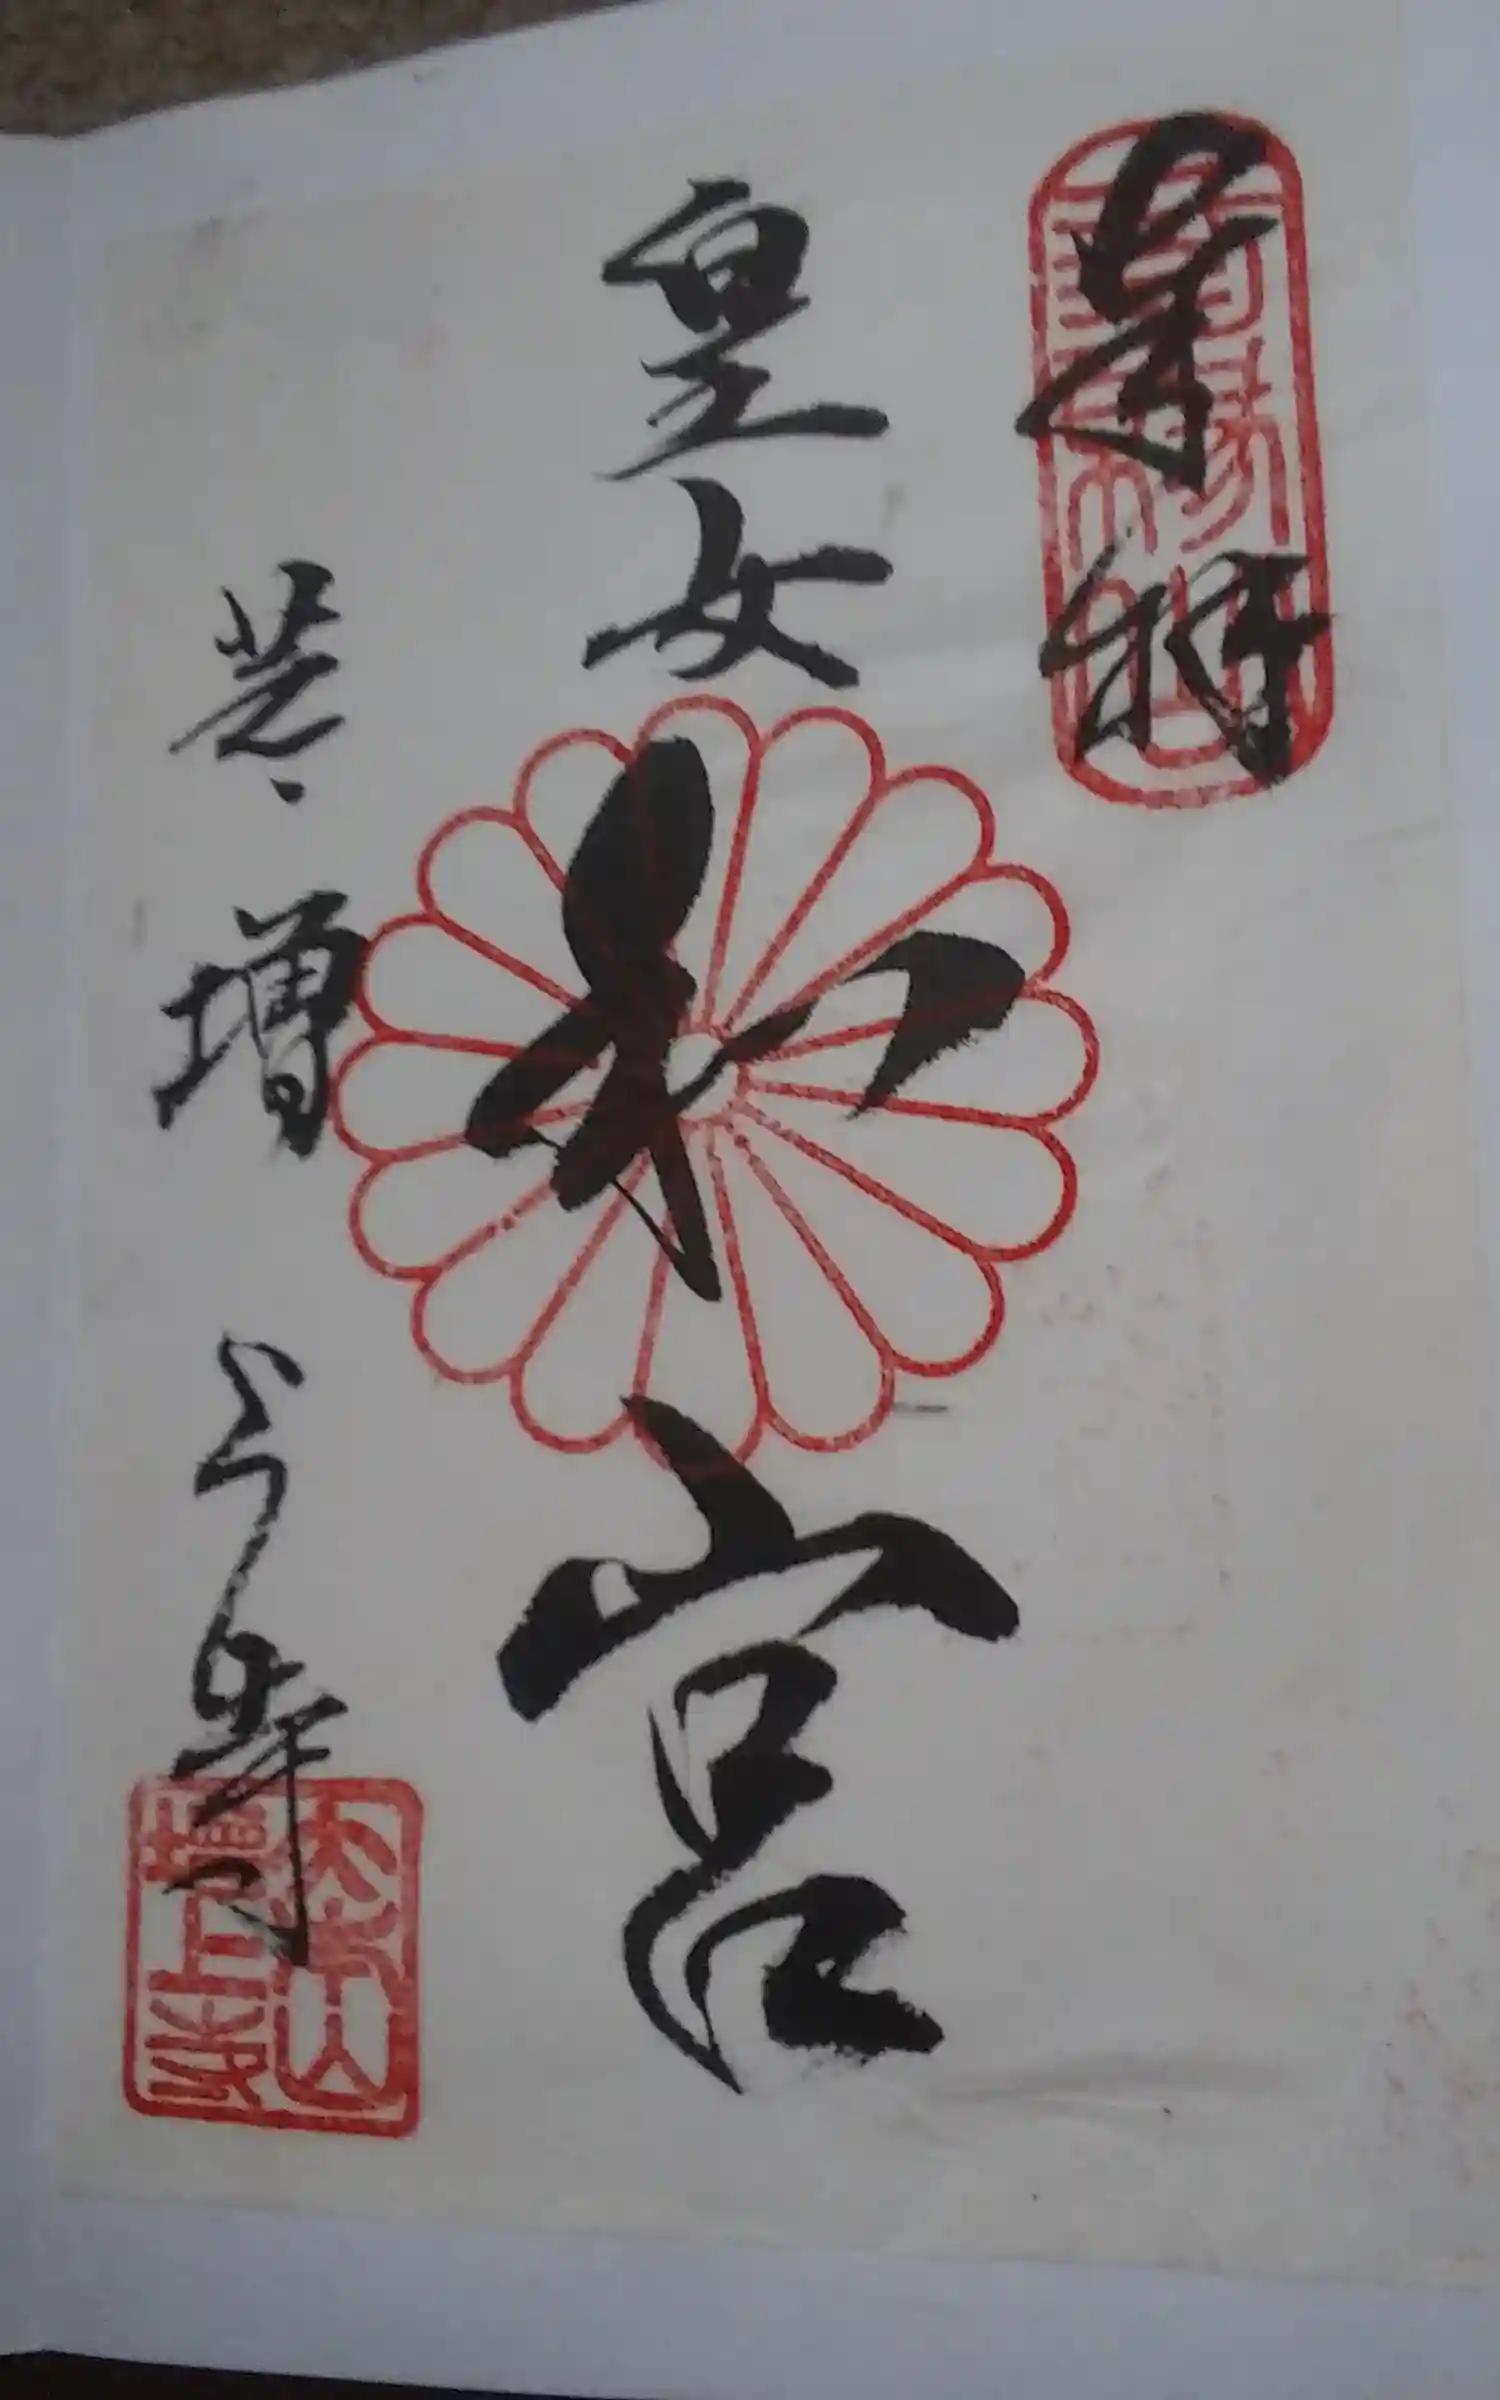 奉拝
皇女
和宮
芝 増上寺
三縁山
増上寺